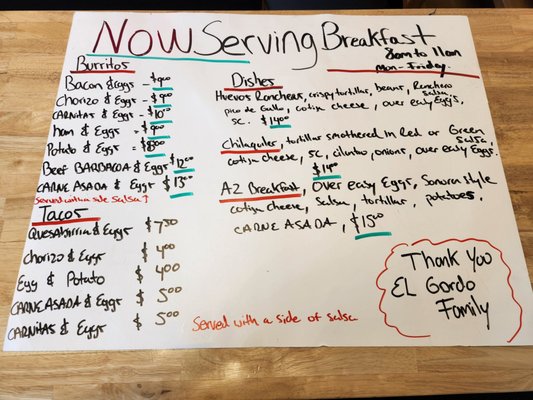 Now Serving Breakfast
8am to 11am
Mon-Friday.
Burritos
Bacon & Eggs - $9.00
Chorizo & Eggs - $9.00
CARNITAS & Eggs - $10.00
Ham & Eggs = $9.00
Potato & Eggs = $8.00
Beef BARBACOA & Eggs $12.00
CARNE ASADA & Eggs $13.00
Served with a side salsa ↑
Tacos
Quesabirria & Eggs $7.50
Chorizo & Eggs $4.00
Egg & Potato $4.00
CARNE ASADA & Eggs $5.00
CARNITAS & Eggs $5.00
Dishes
Huevos Rancheros, crispy tortillas, beans, Ranchero salsa
pico de Gallo, cotija cheese, over easy Eggs,
SC. $14.00
Chilaquiles, tortillas smothered in Red or Green salsa,
cotija cheese, SC, cilantro, onions, over easy Eggs.
$14.00
AZ Breakfast, over easy Eggs, Sonora style
cotija cheese, salsa, tortillas, potatoes,
CARNE ASADA, $15.00
Served with a side of salsa
Thank You
EL Gordo
Family